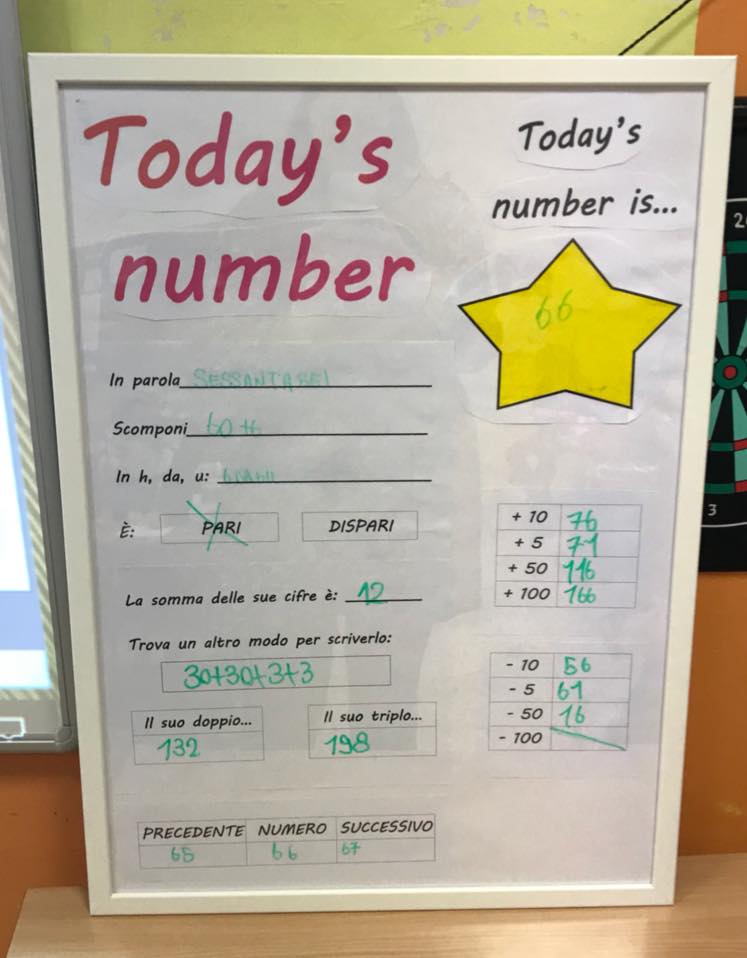 Today's
number
Today's
number is...
66
In parola SESSANTASEI
Scomponi 60+6
In h, da, u:
È: PARI DISPARI
La somma delle sue cifre è: 12
Trova un altro modo per scriverlo:
30+30+3+3
Il suo doppio... Il suo triplo...
132 198
PRECEDENTE NUMERO SUCCESSIVO
65 66 67
+ 10 76
+ 5 71
+ 50 116
+ 100 166
- 10 56
- 5 61
- 50 16
- 100
3